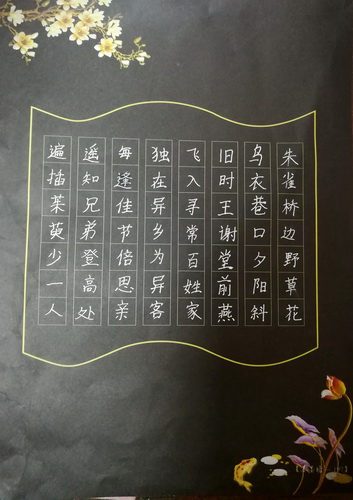 朱雀桥边野草花
乌衣巷口夕阳斜
旧时王谢堂前燕
飞入寻常百姓家
独在异乡为异客
每逢佳节倍思亲
遥知兄弟登高处
遍插茱萸少一人